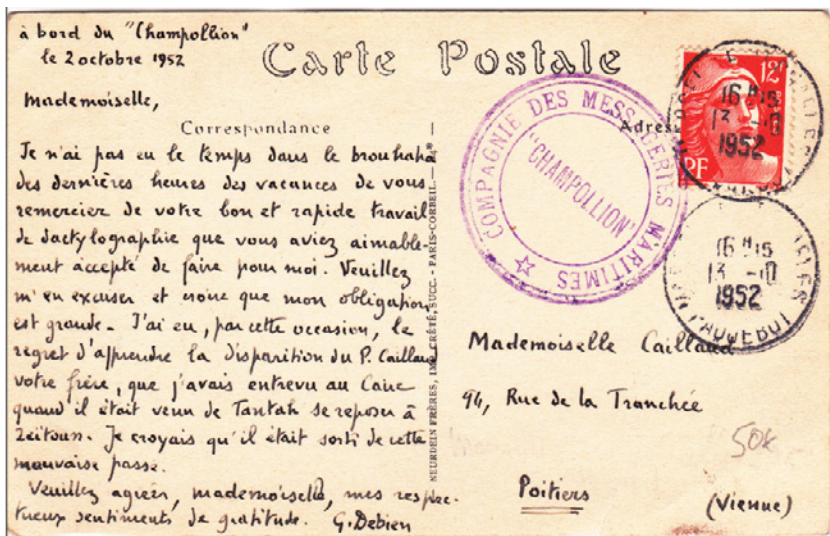 à bord du "Champollion"
le 2 octobre 1952
Carte Postale
Mademoiselle,
Correspondance
Je n'ai pas eu le temps dans le brouhaha
des dernières heures des vacances de vous
remercier de votre bon et rapide travail
de dactylographie que vous aviez aimable-
ment accepté de faire pour moi. Veuillez
m'en excuser et croire que mon obligation
est grande. J'ai eu, par cette occasion, le
regret d'apprendre la disparition du P. Caillaud
votre frère, que j'avais entrevu au Caire
quand il était venu de Tantah se reposer à
Zeïtoun. Je croyais qu'il était sorti de cette
mauvaise passe.
Veuillez agréer, mademoiselle, mes respec-
tueux sentiments de gratitude. G. Debien
NEURDEIN FRÈRES, IMP. CRÉTÉ, SUCC. - PARIS-CORBEIL
COMPAGNIE DES MESSAGERIES MARITIMES
"CHAMPOLLION"
Adres
12F
RF
16 H15
13 -10
1952
16 H15
13 -10
1952
PAQUEBOT
Mademoiselle Caillaud
94, Rue de la Tranchée
50k
Poitiers
(Vienne)